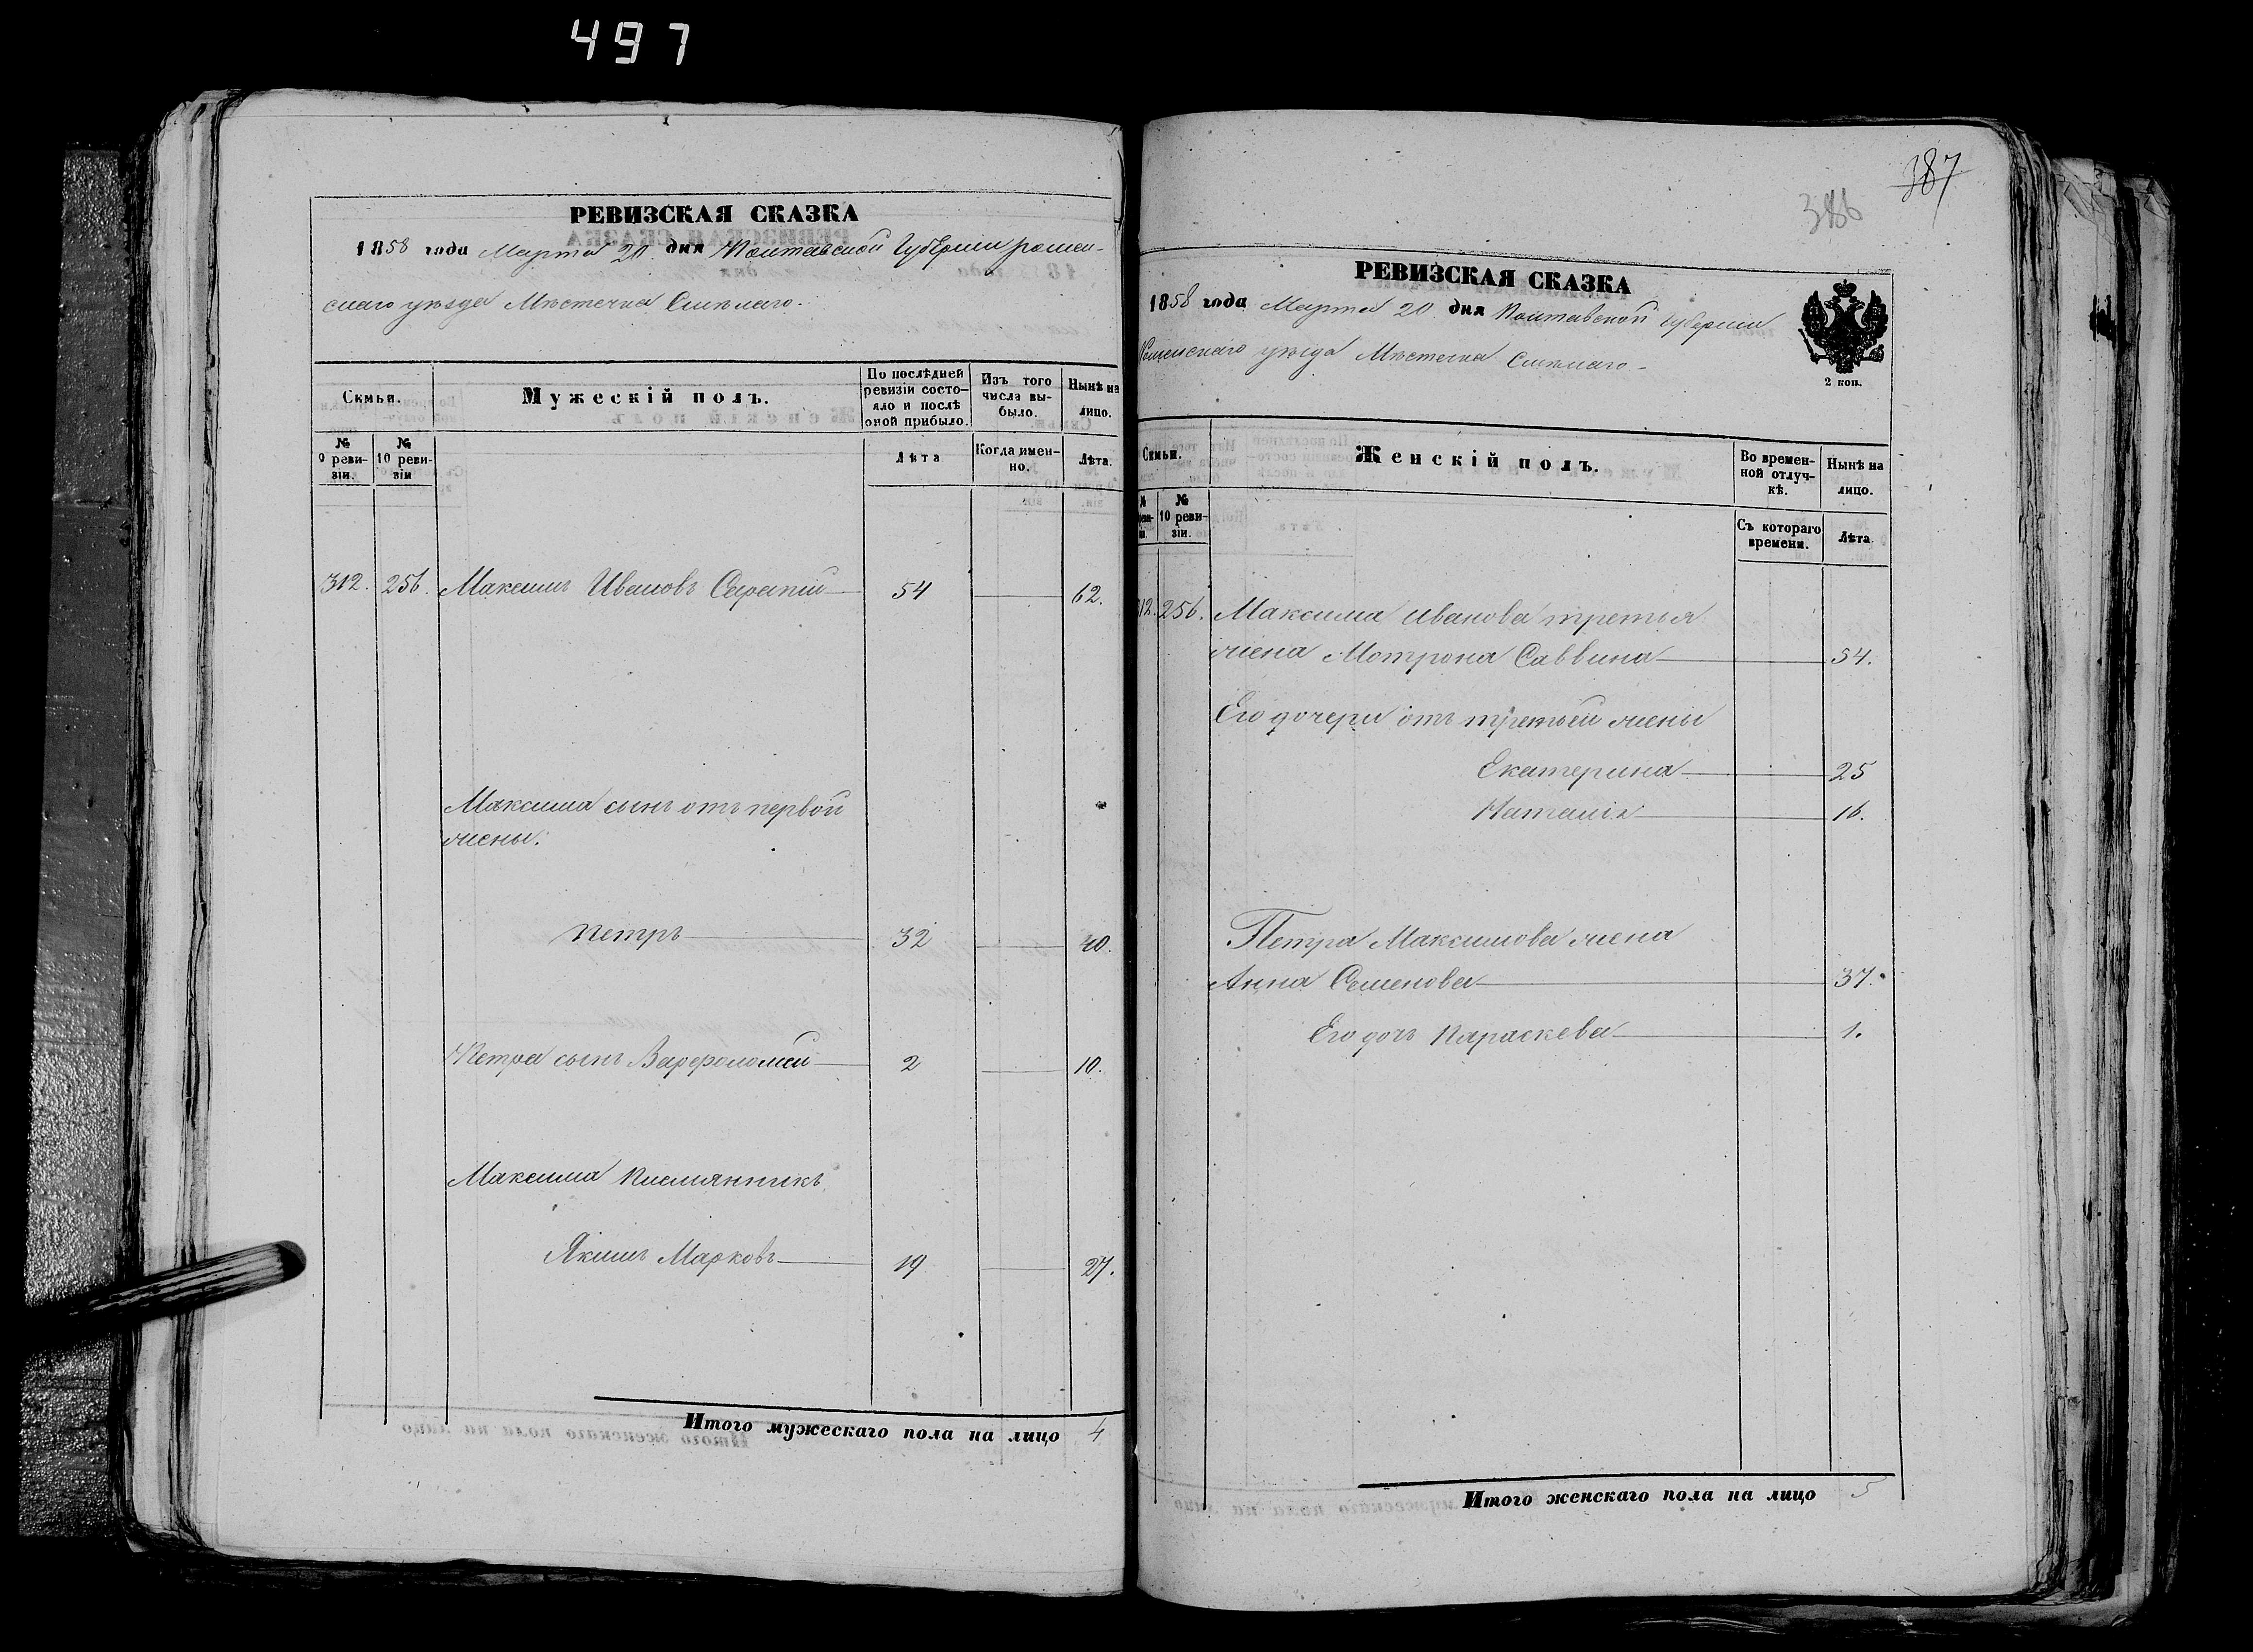 497
РЕВИЗСКАЯ СКАЗКА
1858 года Марта 20 дня Полтавской Губерніи ромен-
скаго уѣзда Мѣстечка Смѣлаго.
Семьи.
Мужескій полъ.
По послѣдней ревизіи состо-яло и послѣ оной прибыло.
Изъ того числа вы-было.
Нынѣ на лицо.
№ 9 реви-зіи.
№ 10 реви-зіи
Лѣта
Когда имен-но.
Лѣта.
312. 256. Максимъ Ивановъ 54 62.
Максима сынъ отъ первой
жены.
Петръ 32 40.
Петра сынъ Варфоломей 2 10.
Максима племянникъ
Якимъ Марковъ 19 27.
Итого мужескаго пола на лицо 4
387
386
РЕВИЗСКАЯ СКАЗКА
1858 года Марта 20 дня Полтавской губерніи
Роменскаго уѣзда Мѣстечка Смѣлаго
2 коп.
Семьи.
Женскій полъ.
Во времен-ной отлуч-кѣ.
Нынѣ на лицо.
№ 10 реви-зіи.
Съ котораго времени.
Лѣта
312. 256. Максима Иванова третья
жена Мотрона Саввина 54.
Его дочери отъ третьей жены
Екатерина 25
Наталія 16.
Петра Максимова жена
Анна Семенова 37.
Его дочь Параскева 1.
Итого женскаго пола на лицо 5